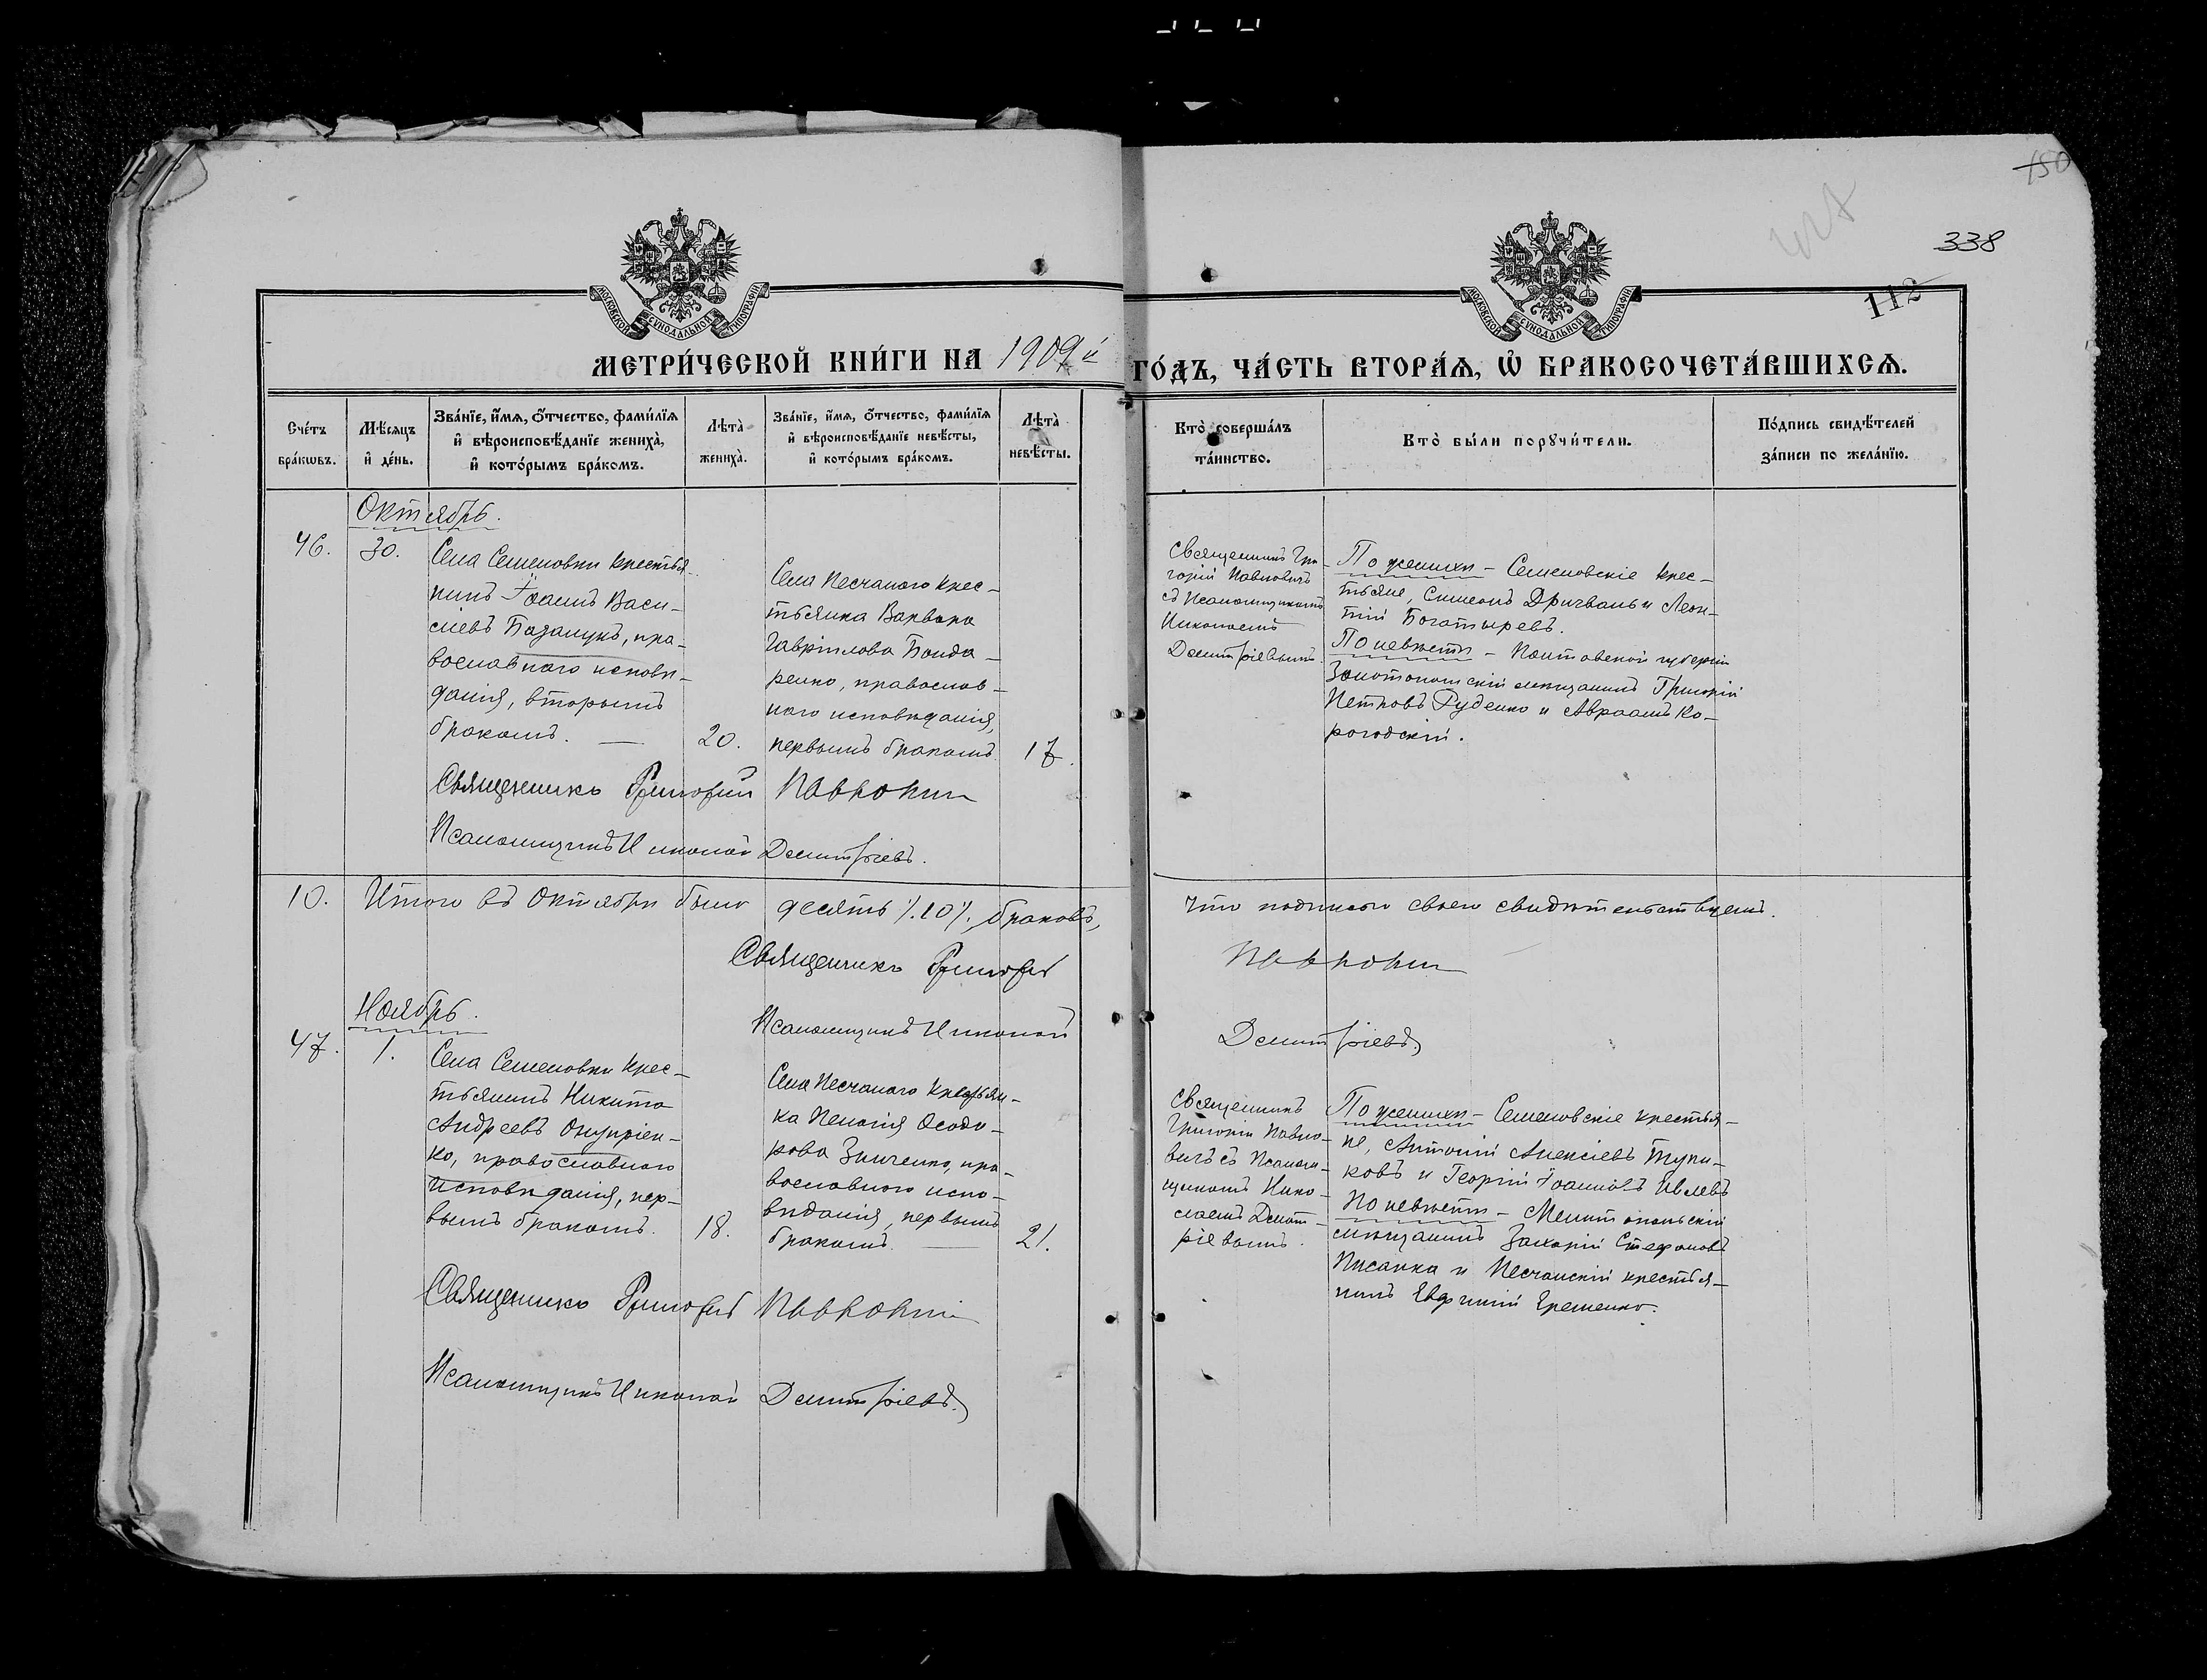 150
338
112
МОСКОВСКОЙ СѴНОДАЛЬНОЙ ТИПОГРАФІИ
МОСКОВСКОЙ СѴНОДАЛЬНОЙ ТИПОГРАФІИ
МЕТРИ́ЧЕСКОЙ КНИ́ГИ НА 1909й
ГО́ДЪ, ЧА́СТЬ ВТОРА́Ѧ, Ѡ҆ БРАКОСОЧЕТА́ВШИХСѦ.
Сче́тъ
бра́кѡвъ.
Мѣ́сѧцъ
и҆ де́нь.
Зва́нїе, и҆́мѧ, ѻ҆́тчество, фами́лїѧ
и҆ вѣроисповѣ́данїе жениха̀,
и҆ кото́рымъ бра́комъ.
Лѣта̀
жениха̀.
Зва́нїе, и҆́мѧ, ѻ҆́тчество, фами́лїѧ
и҆ вѣроисповѣ́данїе невѣ́сты,
и҆ кото́рымъ бра́комъ.
Лѣта̀
невѣ́сты.
Кто̀ соверша́лъ
та́инство.
Кто̀ бы́ли порꙋчи́тели.
По́дпись свидѣ́телей
за́писи по жела́нїю.
Октябрь.
46.
30.
Села Семеновки крестья-
нинъ Іоаннъ Васи-
ліевъ Базалукъ, пра-
вославнаго исповѣ-
данія, вторымъ
бракомъ. —
20.
Села Песчанаго крес-
тьянка Варвара
Гавріилова Бонда-
ренко, православ-
наго исповѣданія,
первымъ бракомъ.
17.
Священникъ Гри-
горій Павловичъ
съ Псаломщикомъ
Николаемъ
Димитріевымъ.
По женихѣ – Семеновскіе крес-
тьяне, Симеонъ Дричванъ и Леон-
тій Богатыревъ.
По невѣстѣ – Полтавской губерніи
Золотоношскій мѣщанинъ Григорій
Петровъ Руденко и Авраамъ Ко-
рогодскій.
Священникъ Григорій
Псаломщикъ Николай Димитріевъ.
10. Итого въ Октябрѣ было десять ⁒10⁒ браковъ,
что подписью своею свидѣтельствуемъ.
Священникъ Григорій
Псаломщикъ Николай Димитріевъ
Ноябрь.
47.
1.
Села Семеновки крес-
тьянинъ Никита
Андреевъ Онупріен-
ко, православнаго
исповѣданія, пер-
вымъ бракомъ.
18.
Села Песчанаго крестьян-
ка Пелагія Ѳеодо-
рова Зинченко, пра-
вославнаго испо-
вѣданія, первымъ
бракомъ. —
21.
Священникъ
Григорій Павло-
вичъ съ Псалом-
щикомъ Нико-
лаемъ Димит-
ріевымъ.
По женихѣ – Семеновскіе крестья-
не, Антоній Алексіевъ Тупи-
ковъ и Георгій Іоанновъ Ивлевъ
По невѣстѣ – Мелитопольскій
мѣщанинъ Захарій Стефановъ
Писанка и Песчанскій крестья-
нинъ Евфимій Еременко.
Священникъ Григорій
Псаломщикъ Николай Димитріевъ